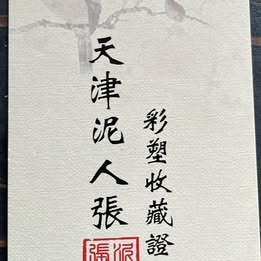 天津泥人張
彩塑收藏證